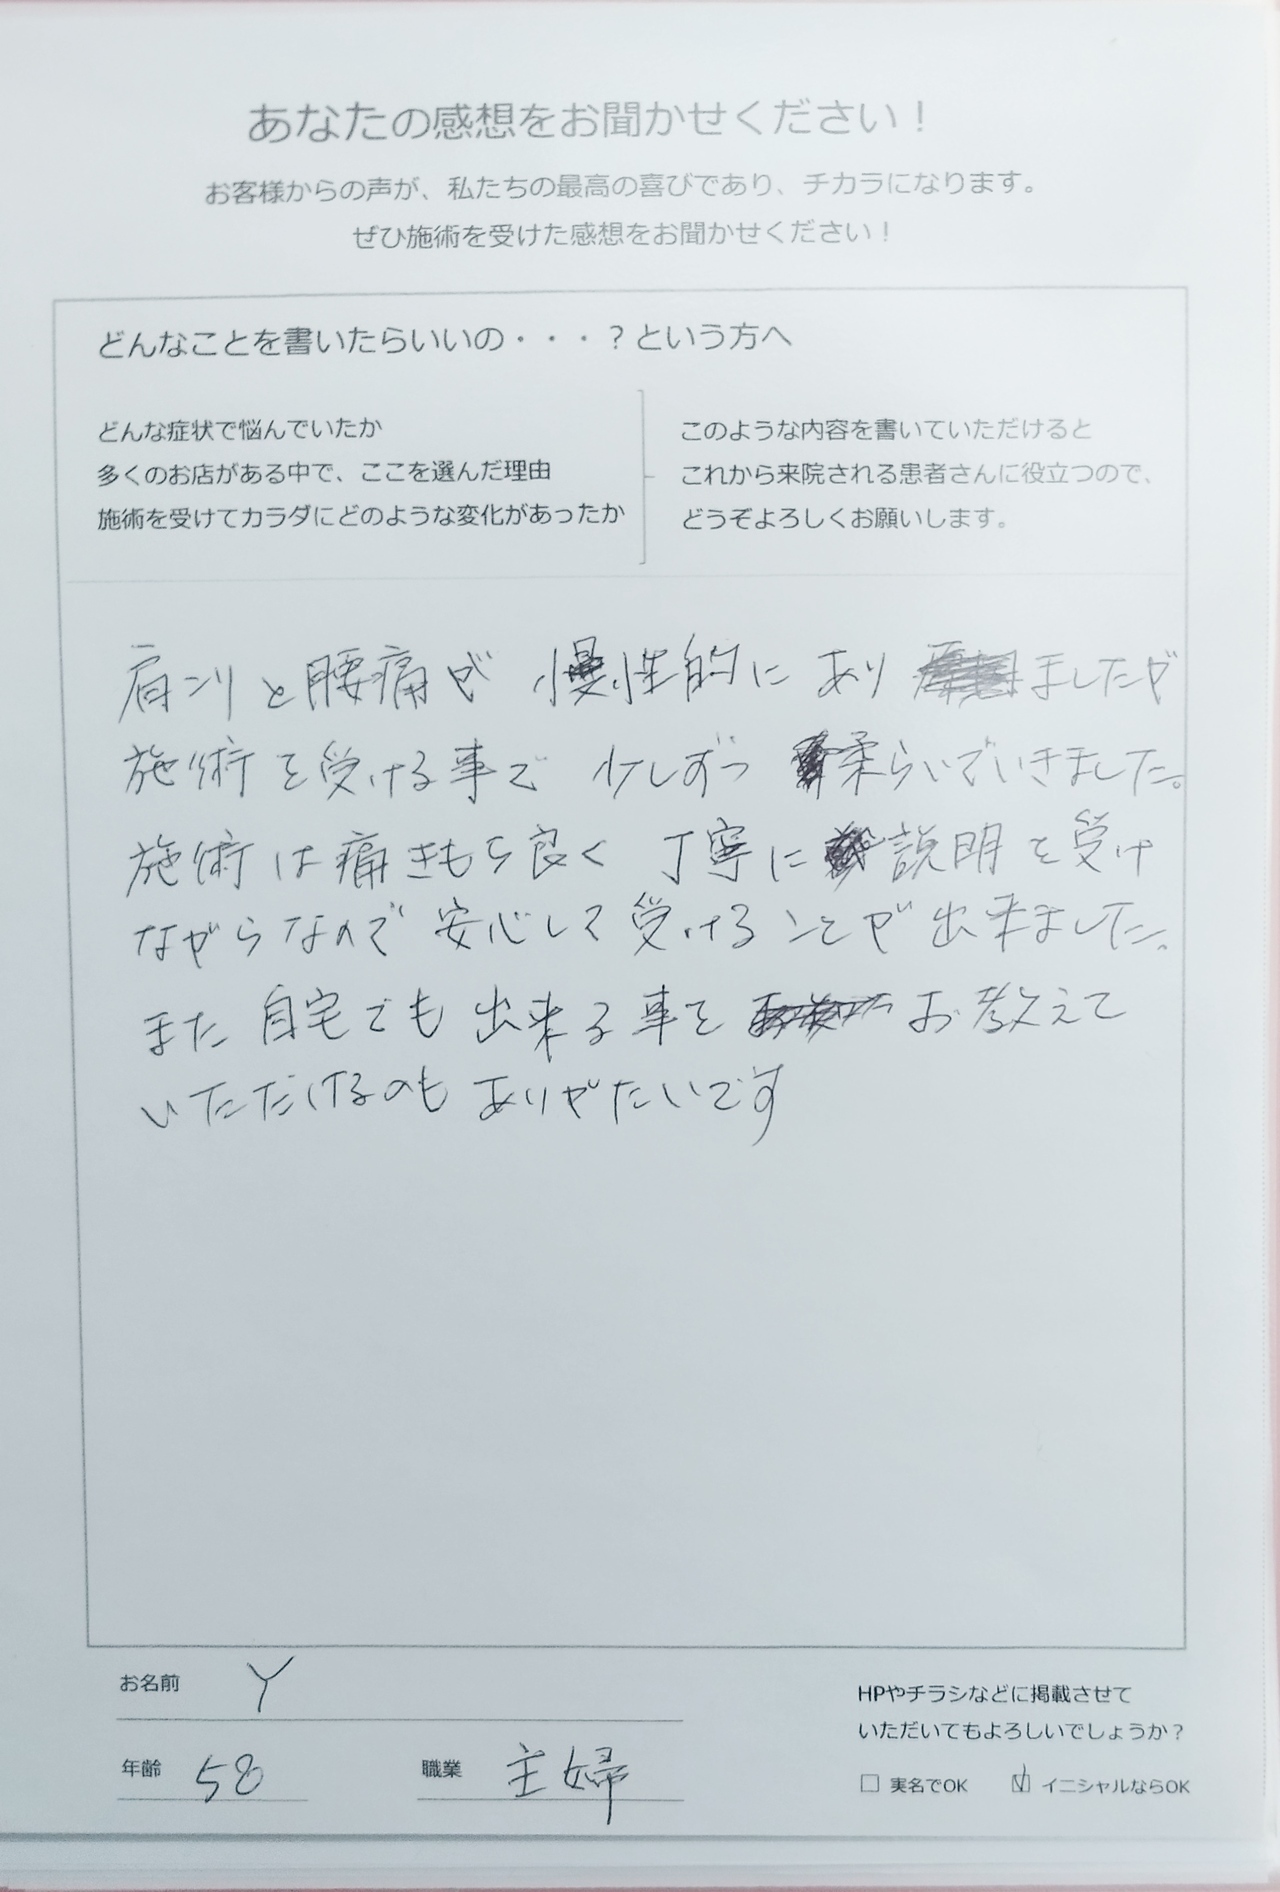 あなたの感想をお聞かせください！
お客様からの声が、私たちの最高の喜びであり、チカラになります。
ぜひ施術を受けた感想をお聞かせください！
どんなことを書いたらいいの・・・？という方へ
どんな症状で悩んでいたか
多くのお店がある中で、ここを選んだ理由
施術を受けてカラダにどのような変化があったか
このような内容を書いていただけると
これから来院される患者さんに役立つので、
どうぞよろしくお願いします。
肩コリと腰痛が 慢性的に あり ましたが
施術を受ける事で 少しずつ 柔らいでいきました。
施術は痛きもち良く 丁寧に 説明を受け
ながらなので 安心して 受けることが 出来ました。
また 自宅でも 出来る事を お教えて
いただけるのも ありがたいです
お名前 Y
年齢 58
職業 主婦
HPやチラシなどに掲載させて
いただいてもよろしいでしょうか？
□ 実名でOK ☑ イニシャルならOK